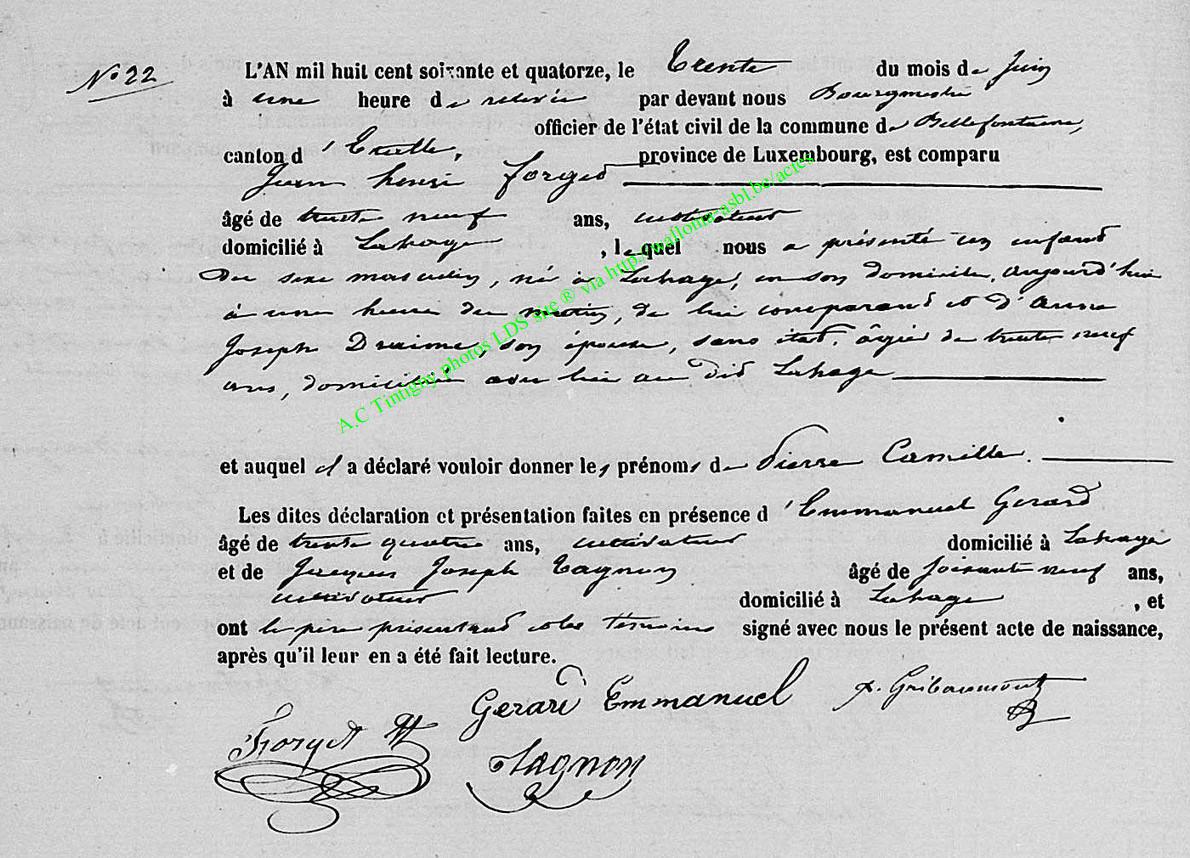 N° 22
L'AN mil huit cent soixante et quatorze, le trente du mois de Juin
à une heure de relevée par devant nous Bourgmestre
officier de l'état civil de la commune de Bellefontaine,
canton d'Etalle, province de Luxembourg, est comparu
Jean henri forget
âgé de trente neuf ans, cultivateur
domicilié à Lahage, lequel nous a présenté un enfant
du sexe masculin, né à Lahage, en son domicile, aujourd'hui
à une heure du matin, de lui comparant et d'Anne
Joseph son épouse, sans état, âgée de trente neuf
ans, domiciliée avec lui au dit Lahage
et auquel il a déclaré vouloir donner les prénoms de Pierre Camille.
Les dites déclaration et présentation faites en présence d'Emmanuel Gerard
âgé de trente quatre ans, cultivateur domicilié à Lahage
et de Jacques Joseph Tagnon âgé de soixante neuf ans,
cultivateur domicilié à Lahage, et
ont le père présentant et les témoins signé avec nous le présent acte de naissance,
après qu'il leur en a été fait lecture.
Gerard Emmanuel
Gribaumont
Forget H
Tagnon
A.C Tintigny photos LDS site ® via http://walloniaasbl.be/actes